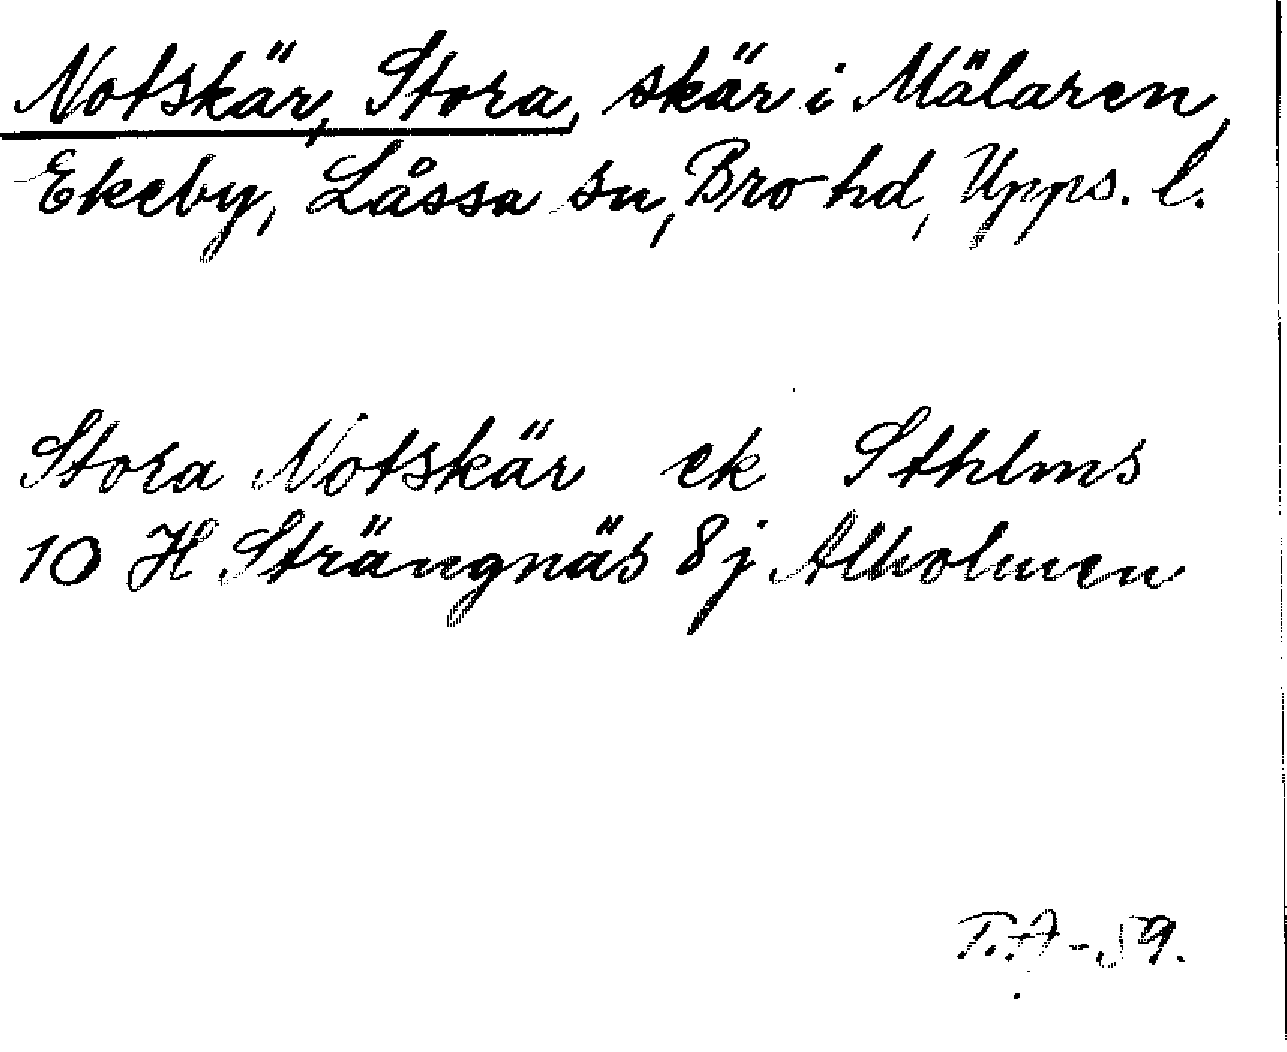 Notskär, Stora, skär i Mälaren,
Ekeby, Låssa sn, Bro hd, Upps. l.
Stora Notskär ek Sthlms
10 H Strängnäs 8j Alholmen
T.A-59.